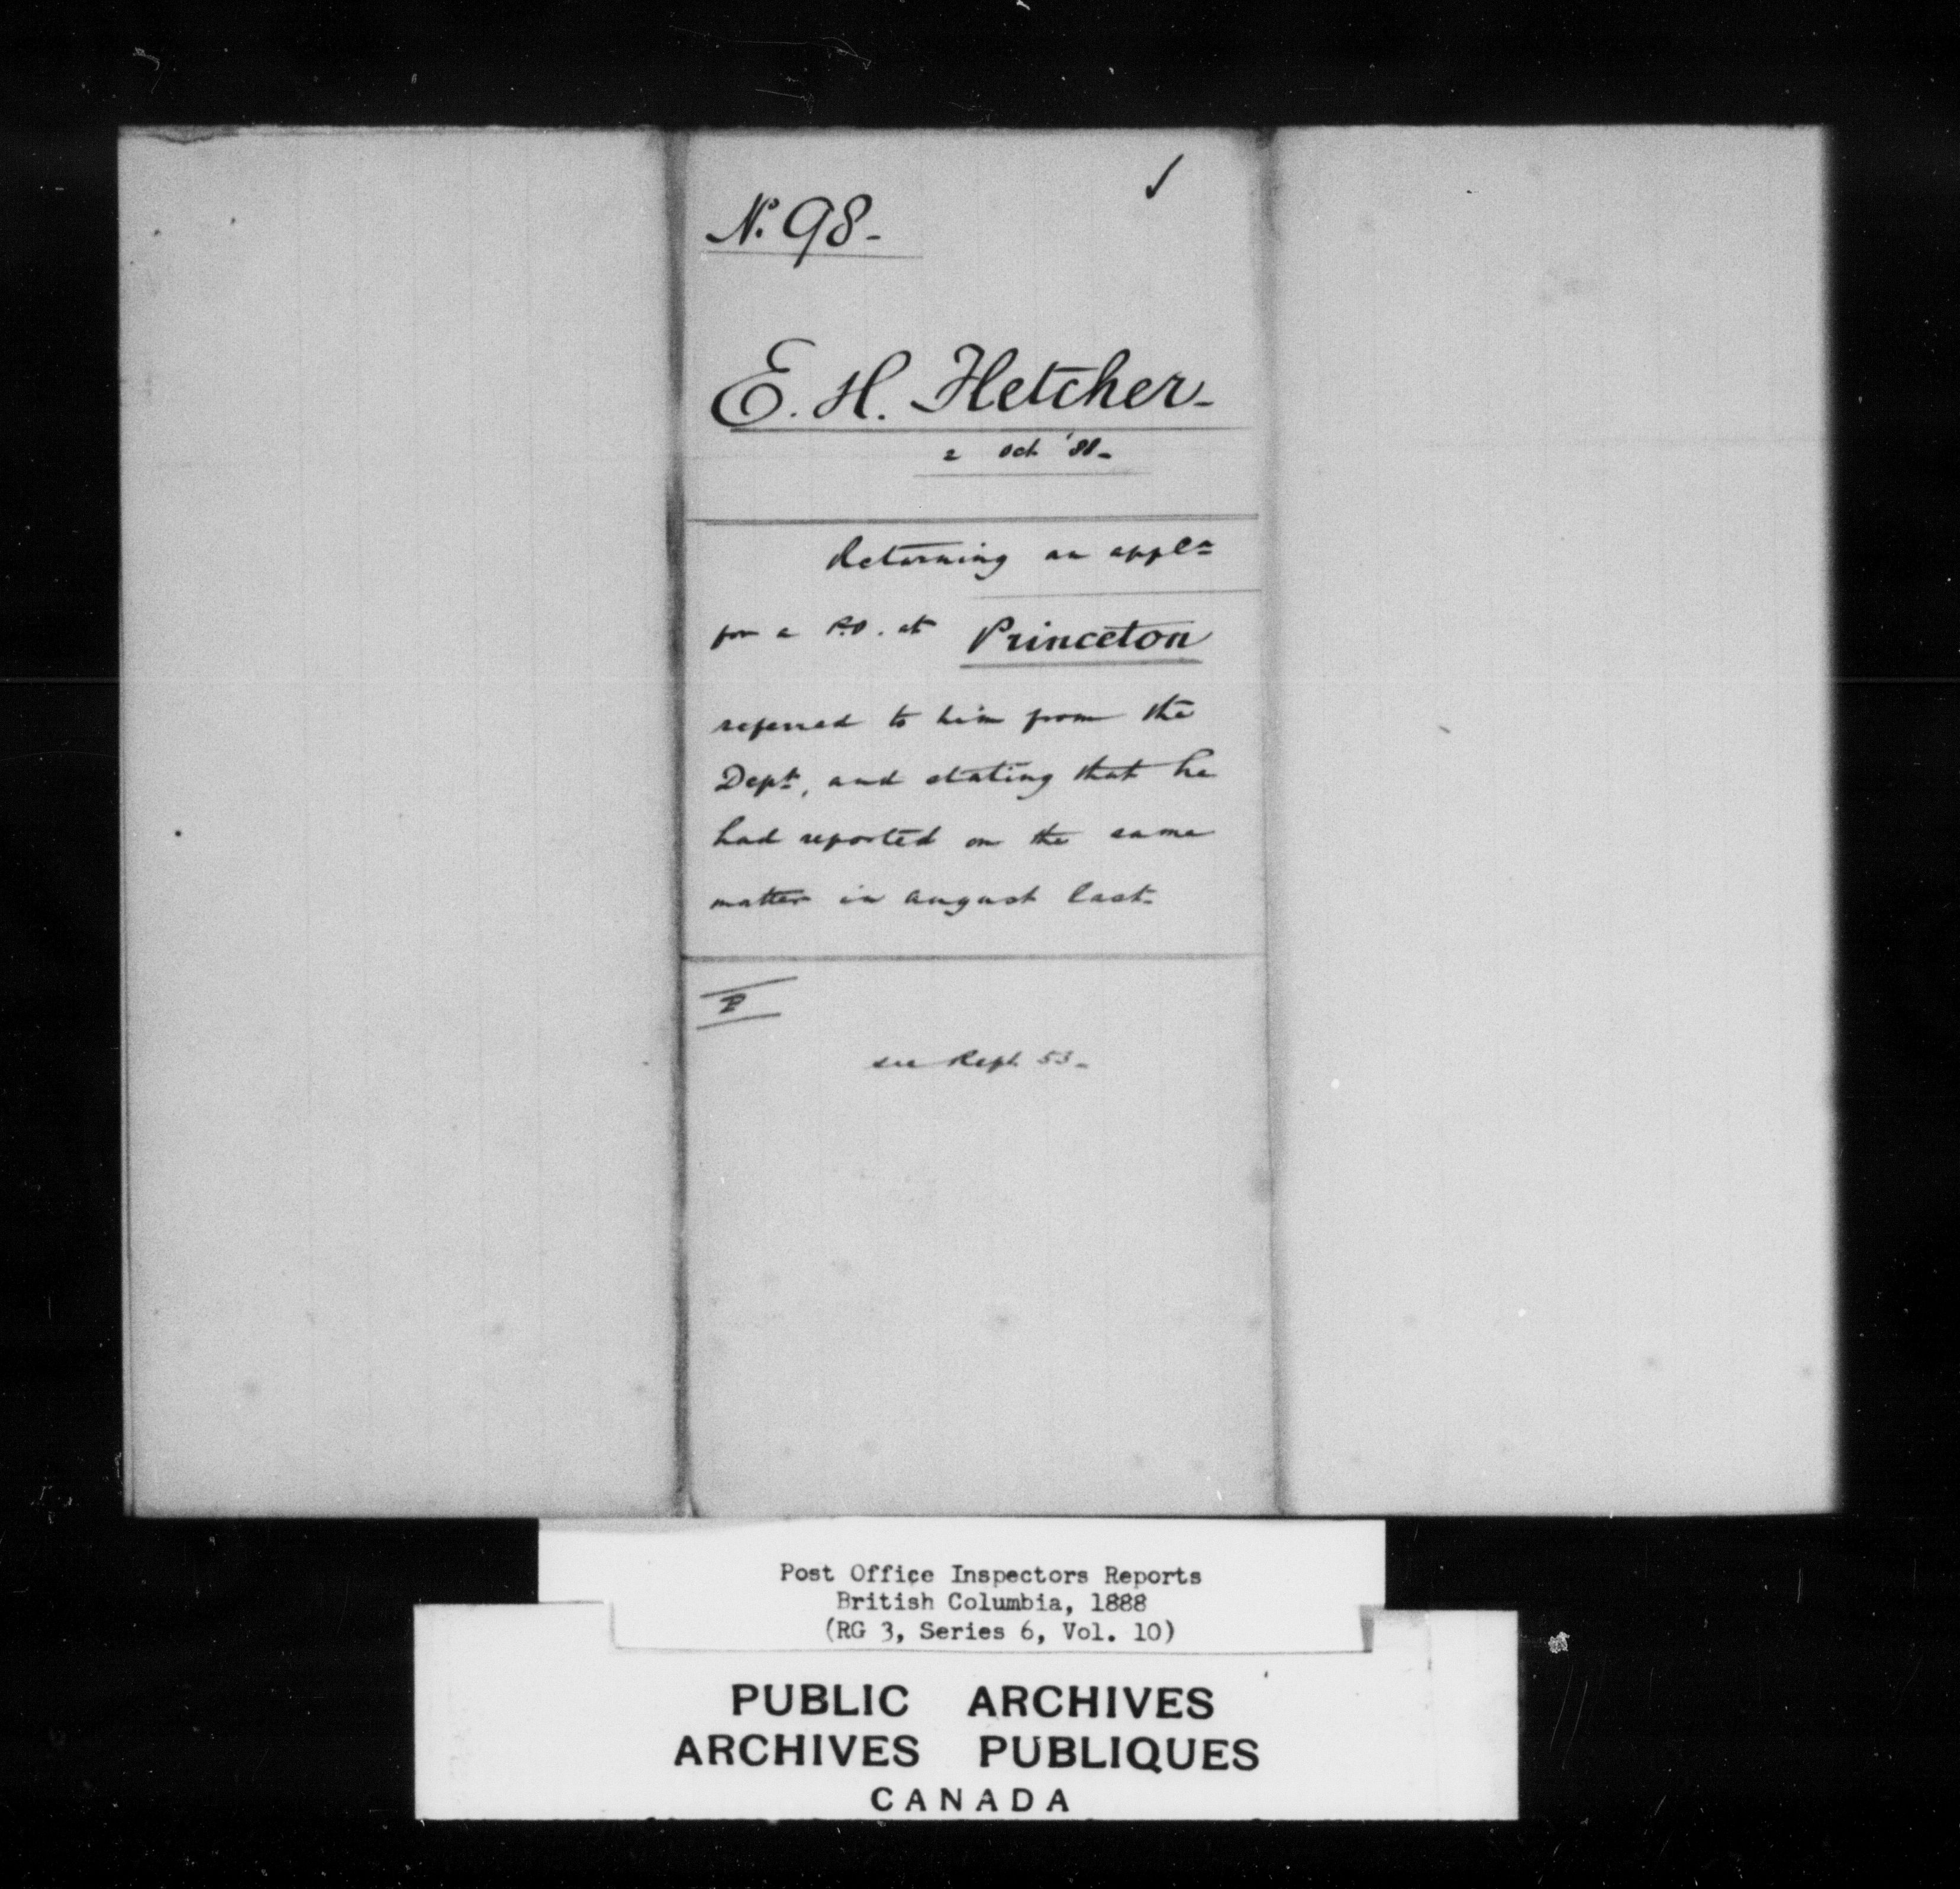 ✓
No. 98-
E. H. Fletcher-
2 Oct '88-
Returning an appln
for a P.O. at Princeton
referred to him from the
Dept, and stating that he
had reported on the same
matter in August last-
see Rept. 53-
Post Office Inspectors Reports
British Columbia, 1888
(RG 3, Series 6, Vol. 10)
PUBLIC ARCHIVES
ARCHIVES PUBLIQUES
CANADA